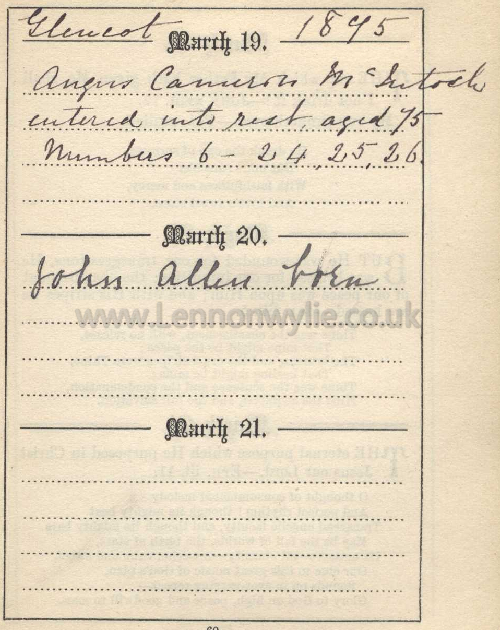 Glencot March 19. 1895
Angus Cameron McIntosh
entered into rest, aged 75
Numbers 6 - 24, 25, 26.
March 20.
John Allen born
www.Lennonwylie.co.uk
March 21.
69